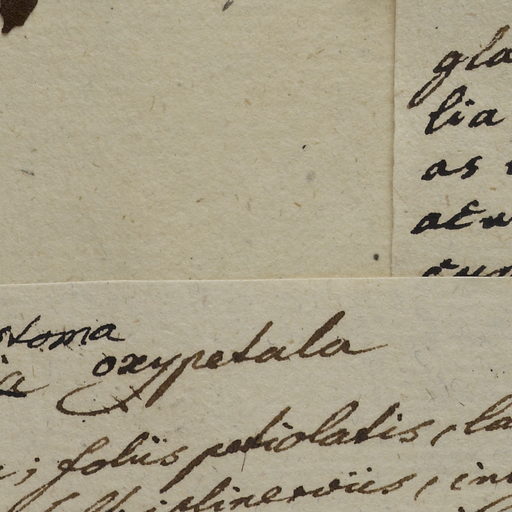 gla
lia
as
acu
stoma
ia oxypetala
; foliis petiolatis, la
plinerviis, in